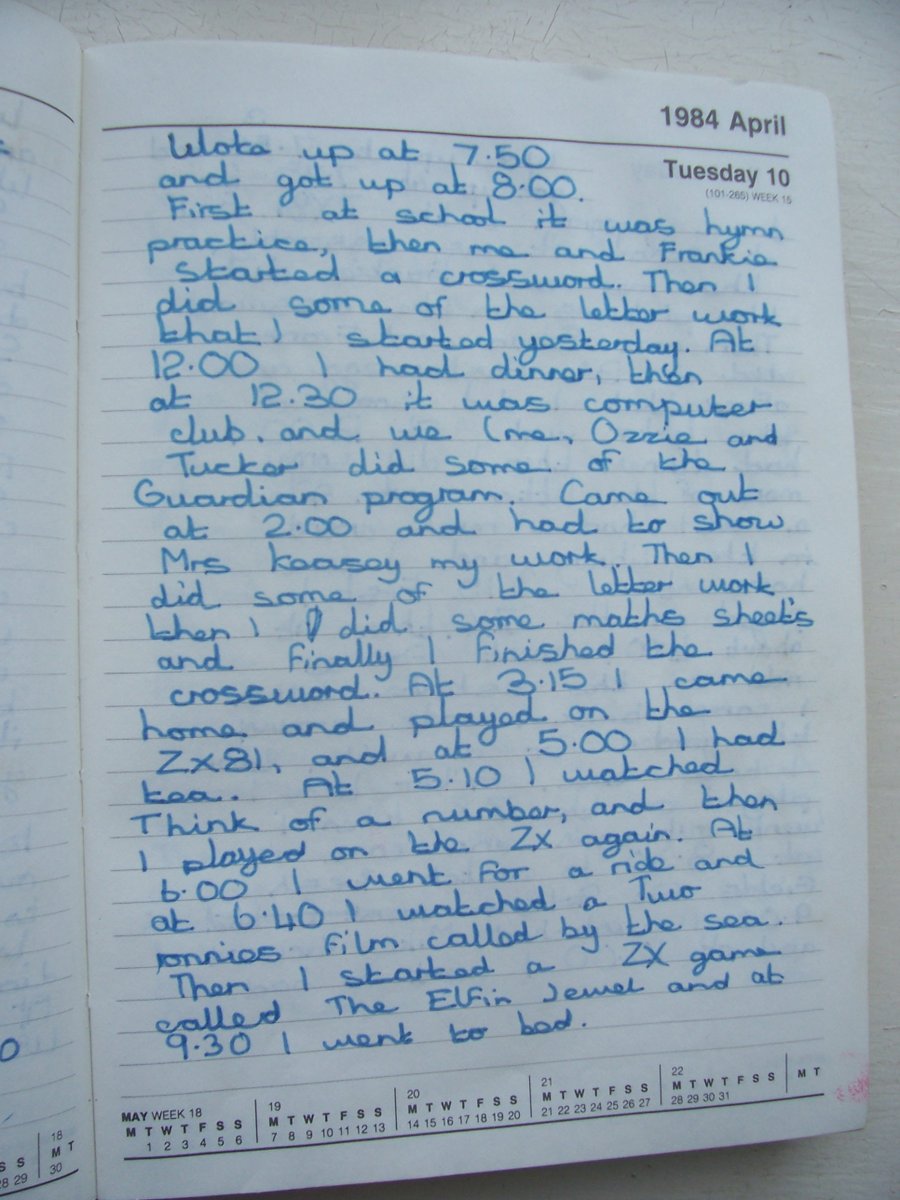 1984 April
Tuesday 10
(101-265) WEEK 15
Woke up at 7.50
and got up at 8.00.
First at school it was hymn
practice, then me and Frankie
started a crossword. Then I
did some of the letter work
that I started yesterday. At
12.00 I had dinner, then
at 12.30 it was computer
club. and we (me, Ozzie and
Tucker did some of the
Guardian program. Came out
at 2.00 and had to show
Mrs Keasey my work. Then I
did some of the letter work
then I did some maths sheets
and finally I finished the
crossword. At 3.15 I came
home and played on the
ZX81, and at 5.00 I had
tea. At 5.10 I watched
Think of a number, and then
I played on the ZX again. At
6.00 I went for a ride and
at 6.40 I watched a Two
ronnies film called by the sea.
Then I started a ZX game
called The Elfin Jewel and at
9.30 I went to bed.
MAY WEEK 18
M T W T F S S
1 2 3 4 5 6
19
M T W T F S S
7 8 9 10 11 12 13
20
M T W T F S S
14 15 16 17 18 19 20
21
M T W T F S S
21 22 23 24 25 26 27
22
M T W T F S S
28 29 30 31
M T
S S
28 29
18
M T
30